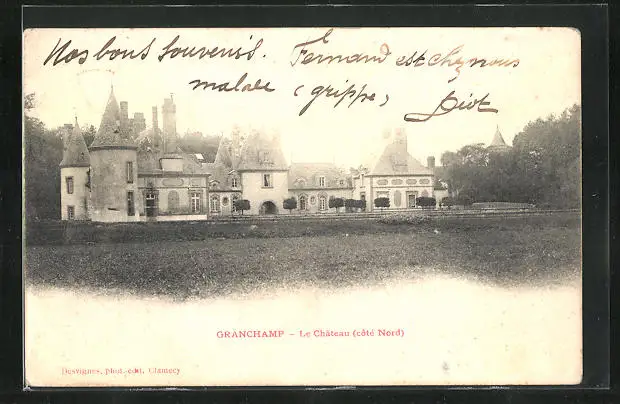 Nos bons souvenirs. Fernand est chez nous
malade (grippe) Piot
GRANCHAMP – Le Château (côté Nord)
Desvignes, phot.-édit. Clamecy